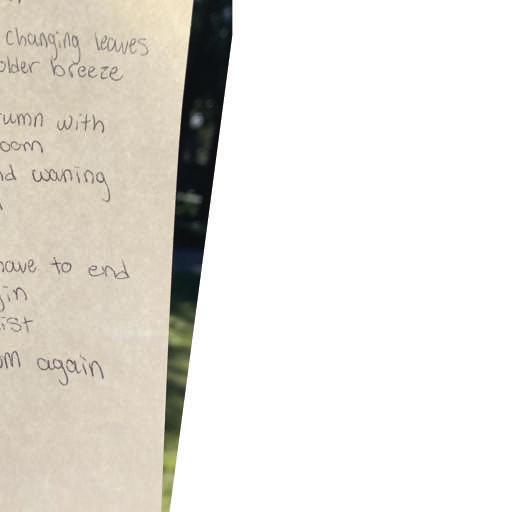 changing leaves
older breeze
umn with
oom
nd waning
have to end
gin
ist
om again